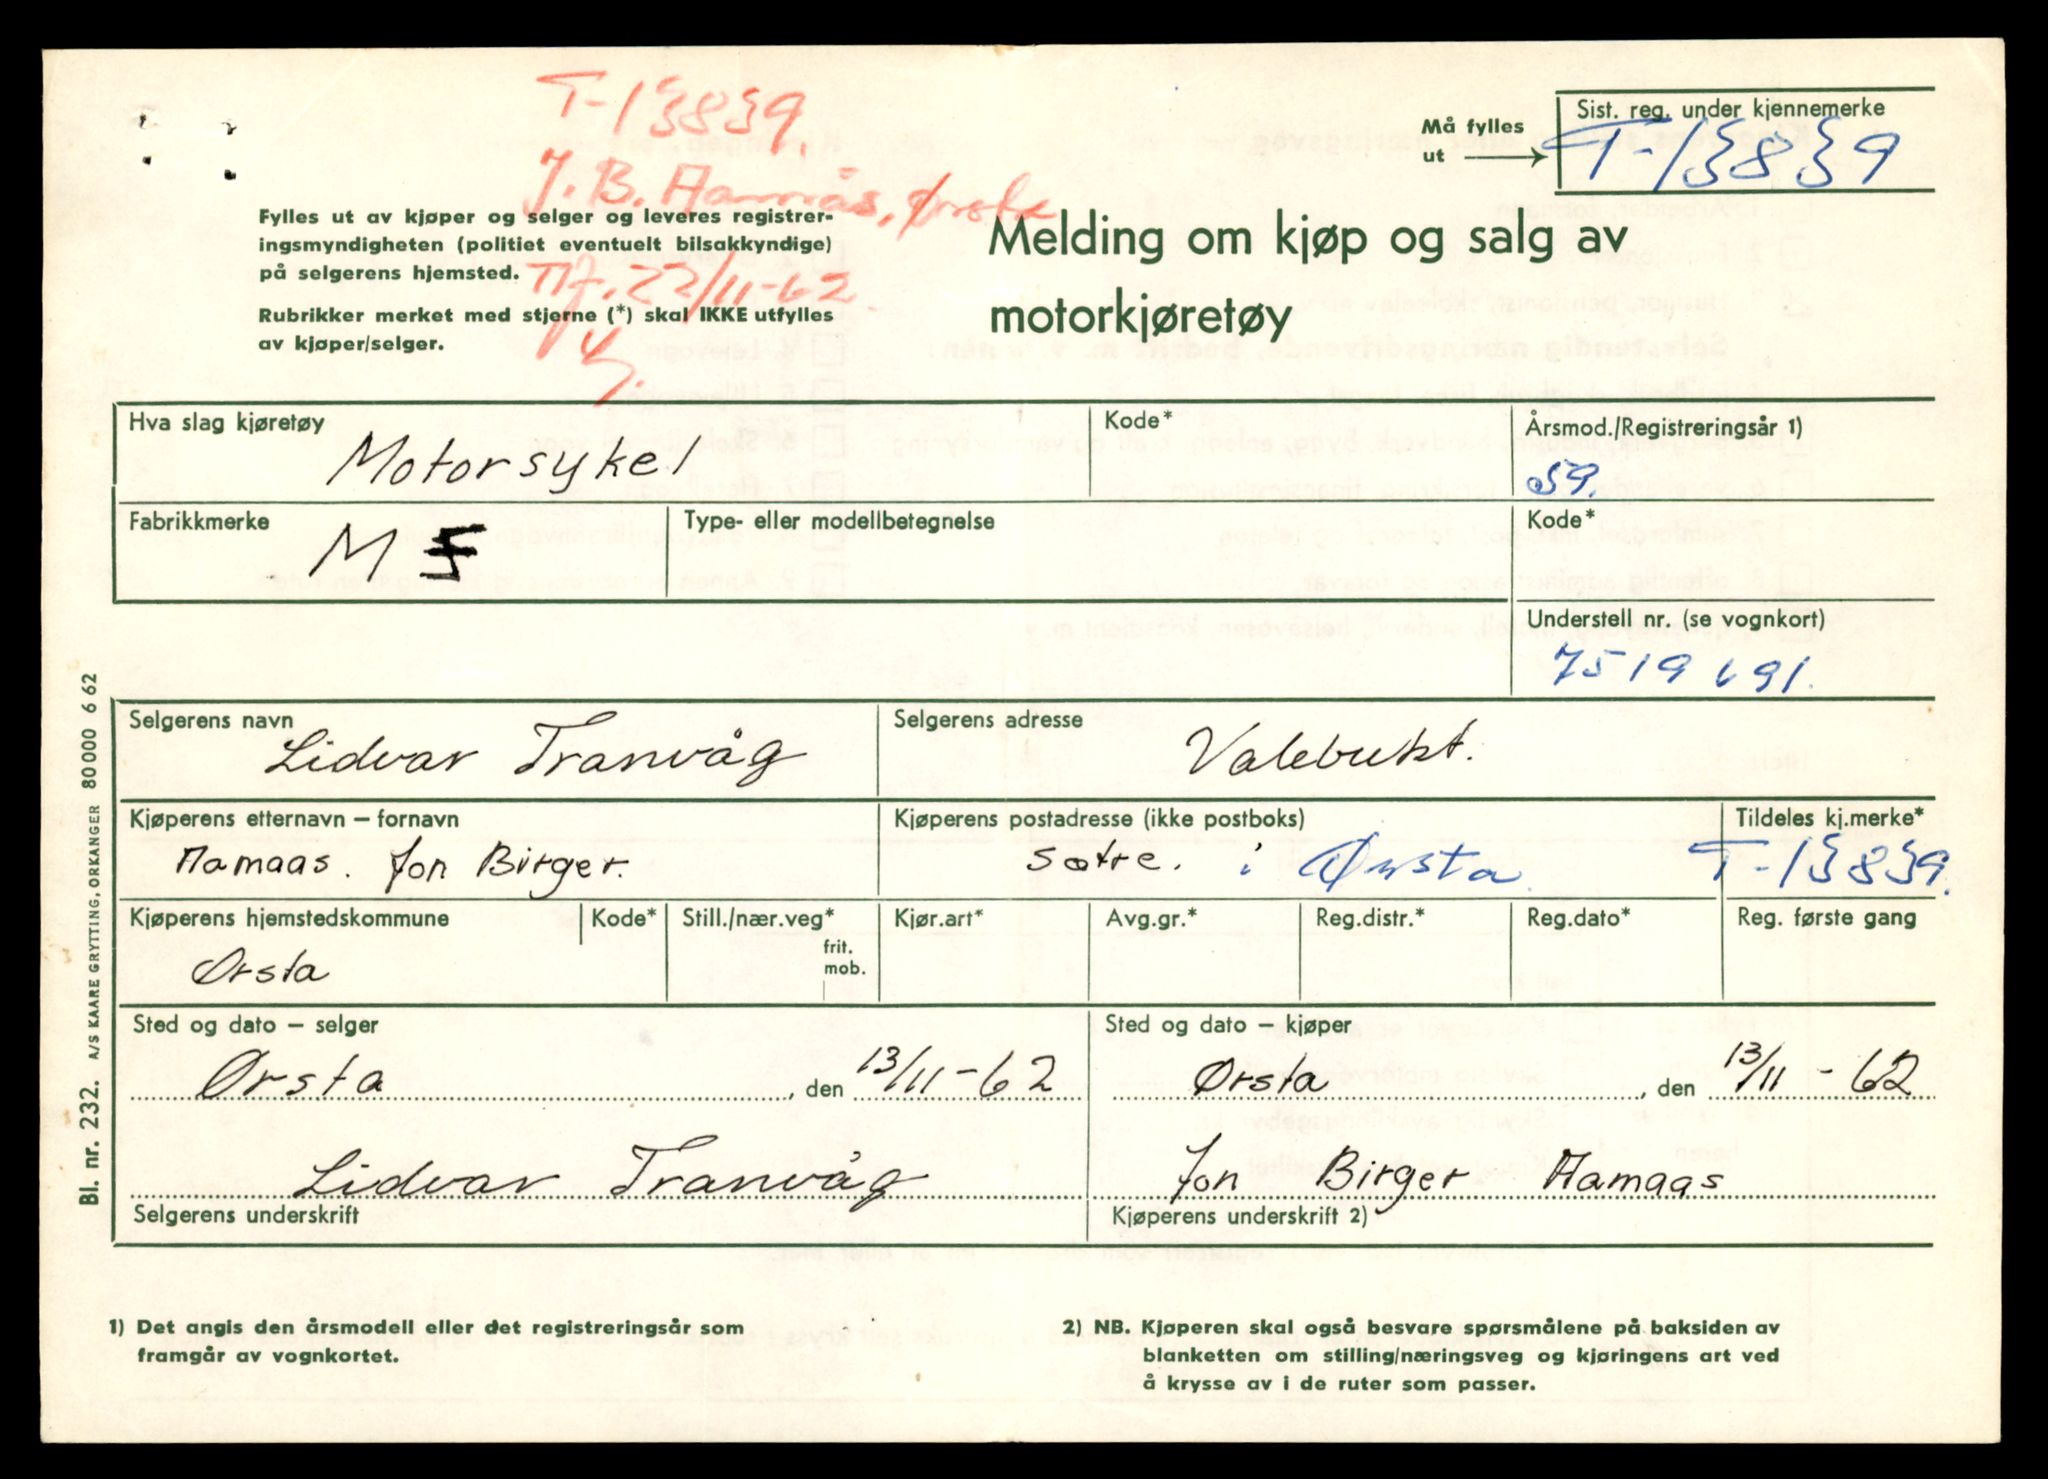 T-13839.
J. B. Aamås, Ørsta
Nf. 22/11-62
Må fylles
ut
Sist. reg. under kjennemerke
T-13839
Fylles ut av kjøper og selger og leveres registrer-
ingsmyndigheten (politiet eventuelt bilsakkyndige)
på selgerens hjemsted.
Rubrikker merket med stjerne (*) skal IKKE utfylles
av kjøper/selger.
Melding om kjøp og salg av
motorkjøretøy
Hva slag kjøretøy
Motorsykel
Kode*
Årsmod./Registreringsår 1)
59.
Fabrikkmerke
Type- eller modellbetegnelse
Kode*
Understell nr. (se vognkort)
7519691.
Selgerens navn
Lidvar Tranvåg
Selgerens adresse
Valebukt.
Kjøperens etternavn – fornavn
Aamaas. Jon Birger.
Kjøperens postadresse (ikke postboks)
Sætre. i Ørsta
Tildeles kj.merke*
T-13839.
Kjøperens hjemstedskommune
Ørsta
Kode*
Still./nær.veg*
frit.
mob.
Kjør.art*
Avg.gr.*
Reg.distr.*
Reg.dato*
Reg. første gang
Sted og dato – selger
Ørsta , den 13/11-62
Sted og dato – kjøper
Ørsta , den 13/11 - 62
Lidvar Tranvåg
Selgerens underskrift
Jon Birger Aamaas
Kjøperens underskrift 2)
1) Det angis den årsmodell eller det registreringsår som
framgår av vognkortet.
2) NB. Kjøperen skal også besvare spørsmålene på baksiden av
blanketten om stilling/næringsveg og kjøringens art ved
å krysse av i de ruter som passer.
Bl. nr. 232. A/S KAARE GRYTTING, ORKANGER 80000 6 62